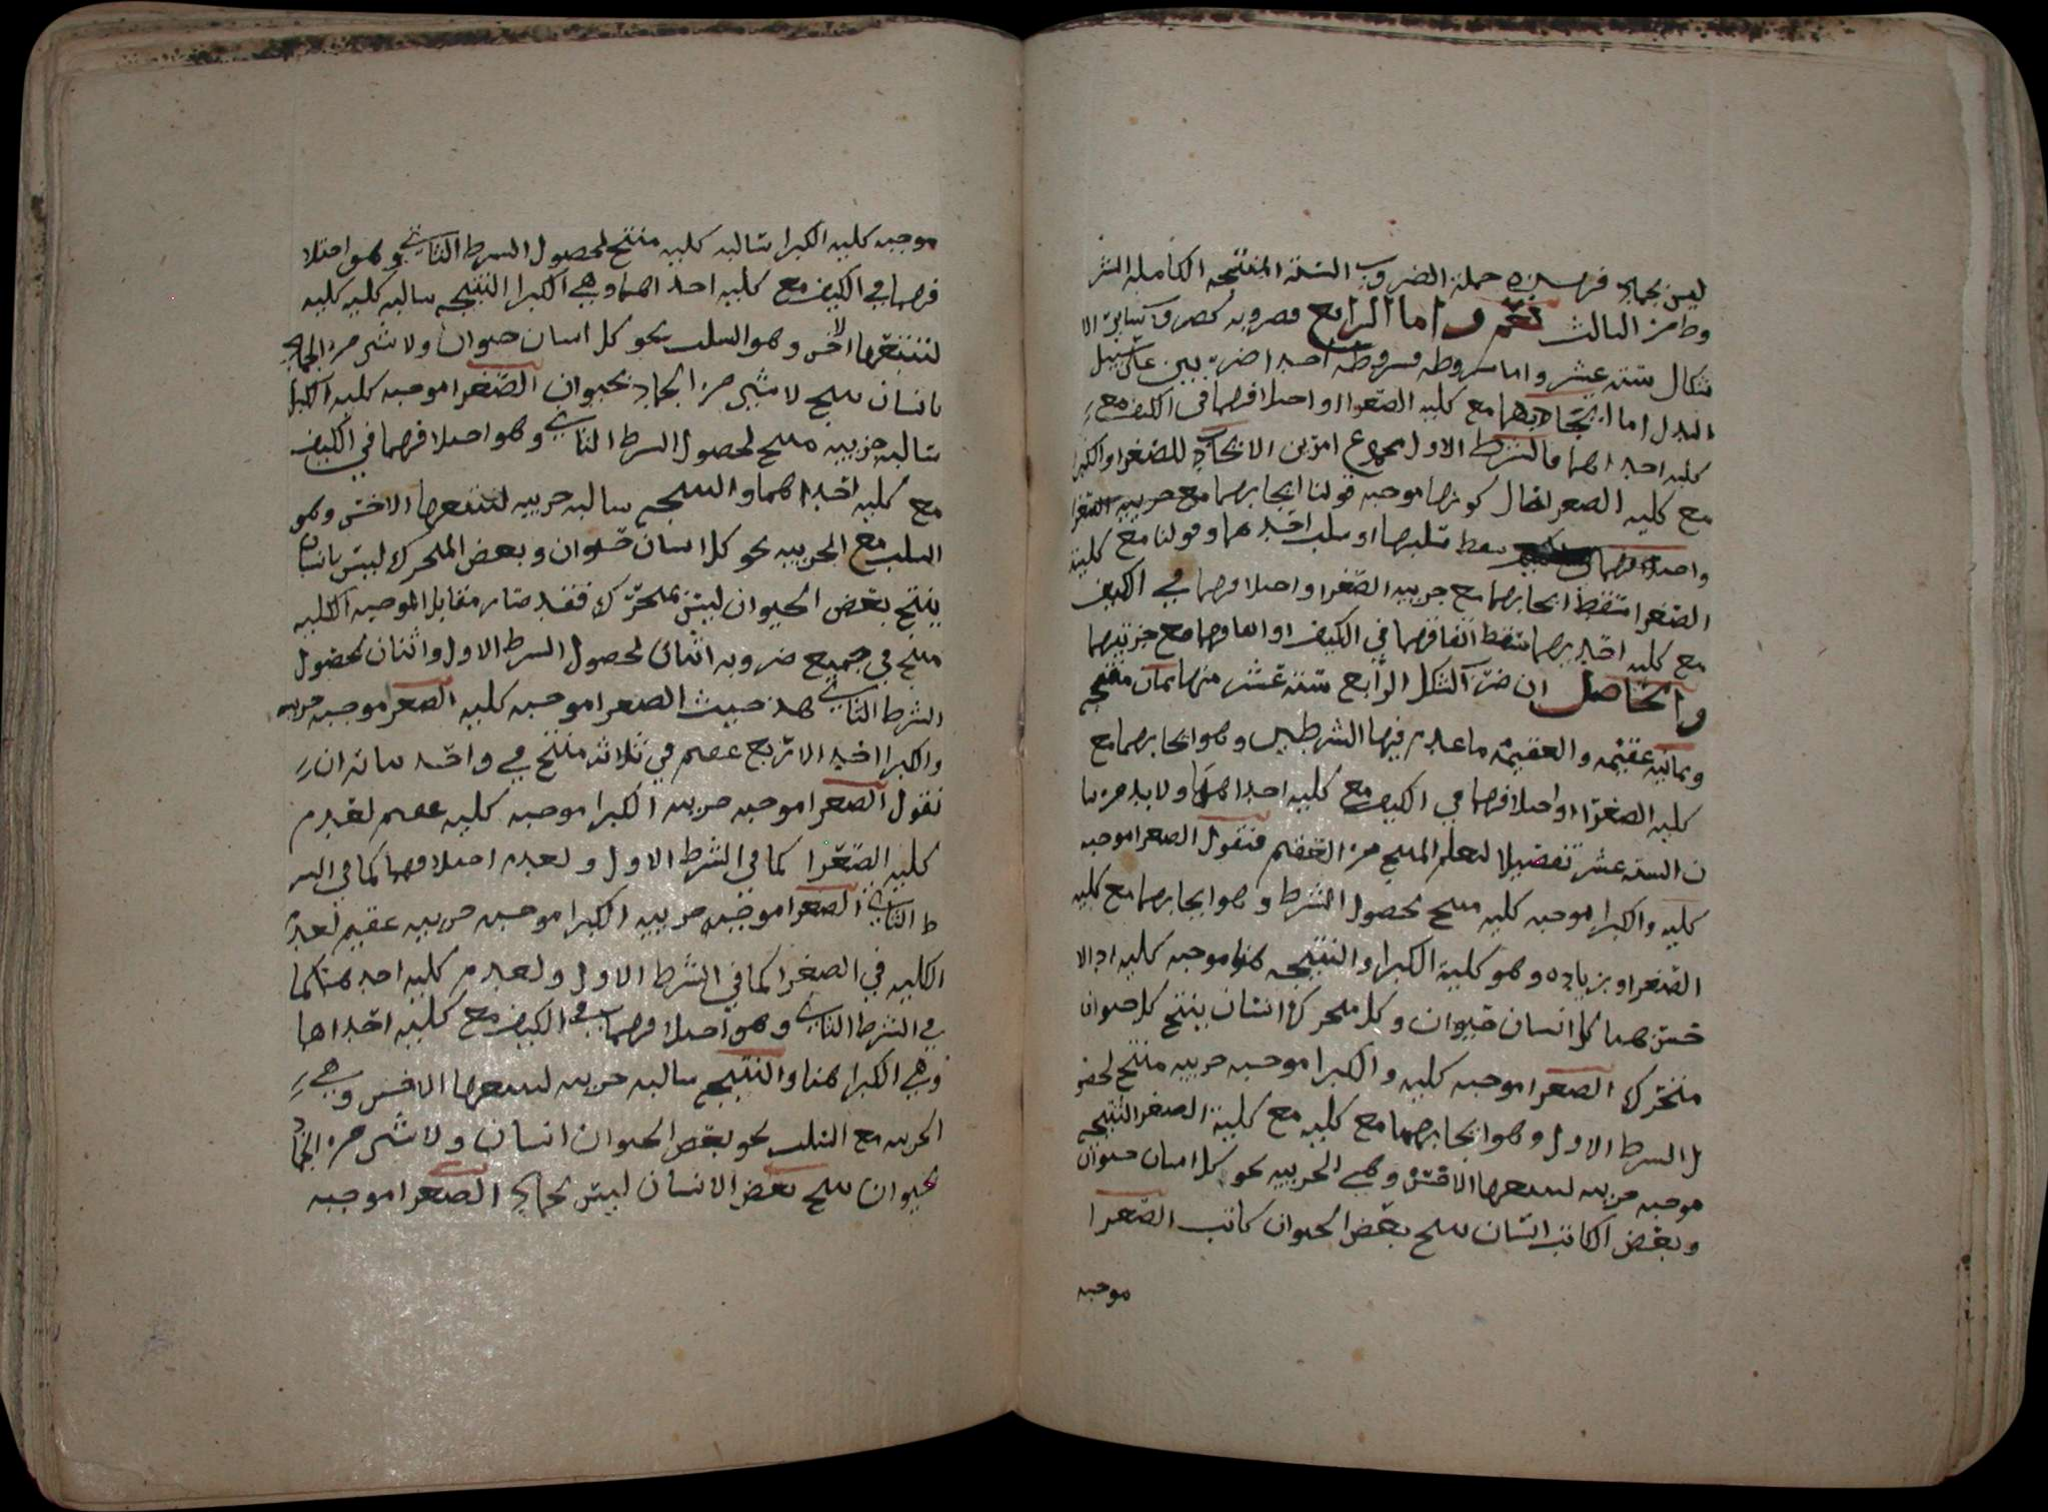 ليس بجماد فهذه جملة الضروب الستة المنتجة الكاملة الشر
وط من الثالث نعم واما الرابع فضروبه كضروب سابق الا
شكال ستة عشر واما شروطه فشروطه احد اضربين على سبيل
البدل اما ايجابهما مع كلية الصغرا او اختلافهما في الكيف مع
كلية احداهما فالشرط الاول مجموع امرين الايجاب للصغرا والكبرا
مع كلية الصغرا فقال كونها موجبه قولنا ايجابهما مع جزييه الصغرا
واختلافهما سقط سلبهما او سلب احدهما وقولنا مع كلية
الصغرا سقط ايجابهما مع جزييه الصغرا واختلافهما في الكيف
مع كلية احديهما سقط اتفاقهما في الكيف او اتفاقهما مع جزئيتهما
والحاصل ان ضرب الشكل الرابع ستة عشر منها ثمان منتجه
وثمانيه عقيمه والعقيمه ما عدم فيها الشرطين وهو ايجابهما مع
كليه الصغرا او اختلافهما في الكيف مع كليه احداهما ولا بد من بيا
ن الستة عشر تفصيلا لتعلم المنتج من العقيم فنقول الصغرا موجبه
كليه والكبرا موجبه كليه منتج لحصول الشرط وهو ايجابهما مع كليه
الصغرا وبزياده وهو كلية الكبرا والنتيجه هنا موجبه كليه اذ الا
خس هما كل انسان حيوان وكل متحرك انسان ينتج كل حيوان
متحرك الصغرا موجبه كليه والكبرا موجبه جزييه منتج لحصو
ل الشرط الاول وهو ايجابهما مع كليه مع كلية الصغرا النتيجه
موجبه جزييه لتتبعها الاخس وهي الجزييه نحو كل انسان حيوان
وبعض الكاتب انسان ينتج بعض الحيوان كاتب الصغرا
موجبه
موجبه كليه الكبرا سالبه كليه منتج لحصول الشرط الثاني وهو اختلا
فهما في الكيف مع كليه احداهما وهي الكبرا النتيجه سالبه كليه كليه
لتتبعها الاخس وهو السلب نحو كل انسان حيوان ولا شي من الجماد
بانسان ينتج لا شي من الجماد بحيوان الصغرا موجبه كليه الكبرا
سالبه جزييه منتج لحصول الشرط الثاني وهو اختلافهما في الكيف
مع كليه احداهما والنتيجه سالبه جزييه لتتبعها الاخس وهو
السلب مع الجزييه نحو كل انسان حيوان وبعض المتحرك ليس بانسان
ينتج بعض الحيوان ليس بمتحرك فقد صار مقابل الموجبه الكليه
منتج في جميع ضروبه اثنان لحصول الشرط الاول واثنان لحصول
الشرط الثاني هذ حيث الصغرا موجبه كليه الصغرا موجبه جزييه
والكبرا احد الاربع عقيم في ثلاثة منتج في واحد بيانه ان
نقول الصغرا موجبه جزييه الكبرا موجبه كليه عقيم لعدم
كليه الصغرا كما في الشرط الاول ولعدم اختلافهما كما في الشر
ط الثاني الصغرا موجبه جزييه الكبرا موجبه جزييه عقيم لعدم
الكليه في الصغرا كما في الشرط الاول ولعدم كليه احدهما كما
في الشرط الثاني وهو اختلافهما في الكيف مع كليه احداها
وهي الكبرا هنا والنتيجه سالبه جزييه لتتبعها الاخس وهي
الجزييه مع السلب نحو بعض الحيوان انسان ولا شي من الجماد
بحيوان ينتج بعض الانسان ليس بجماد الصغرا موجبه